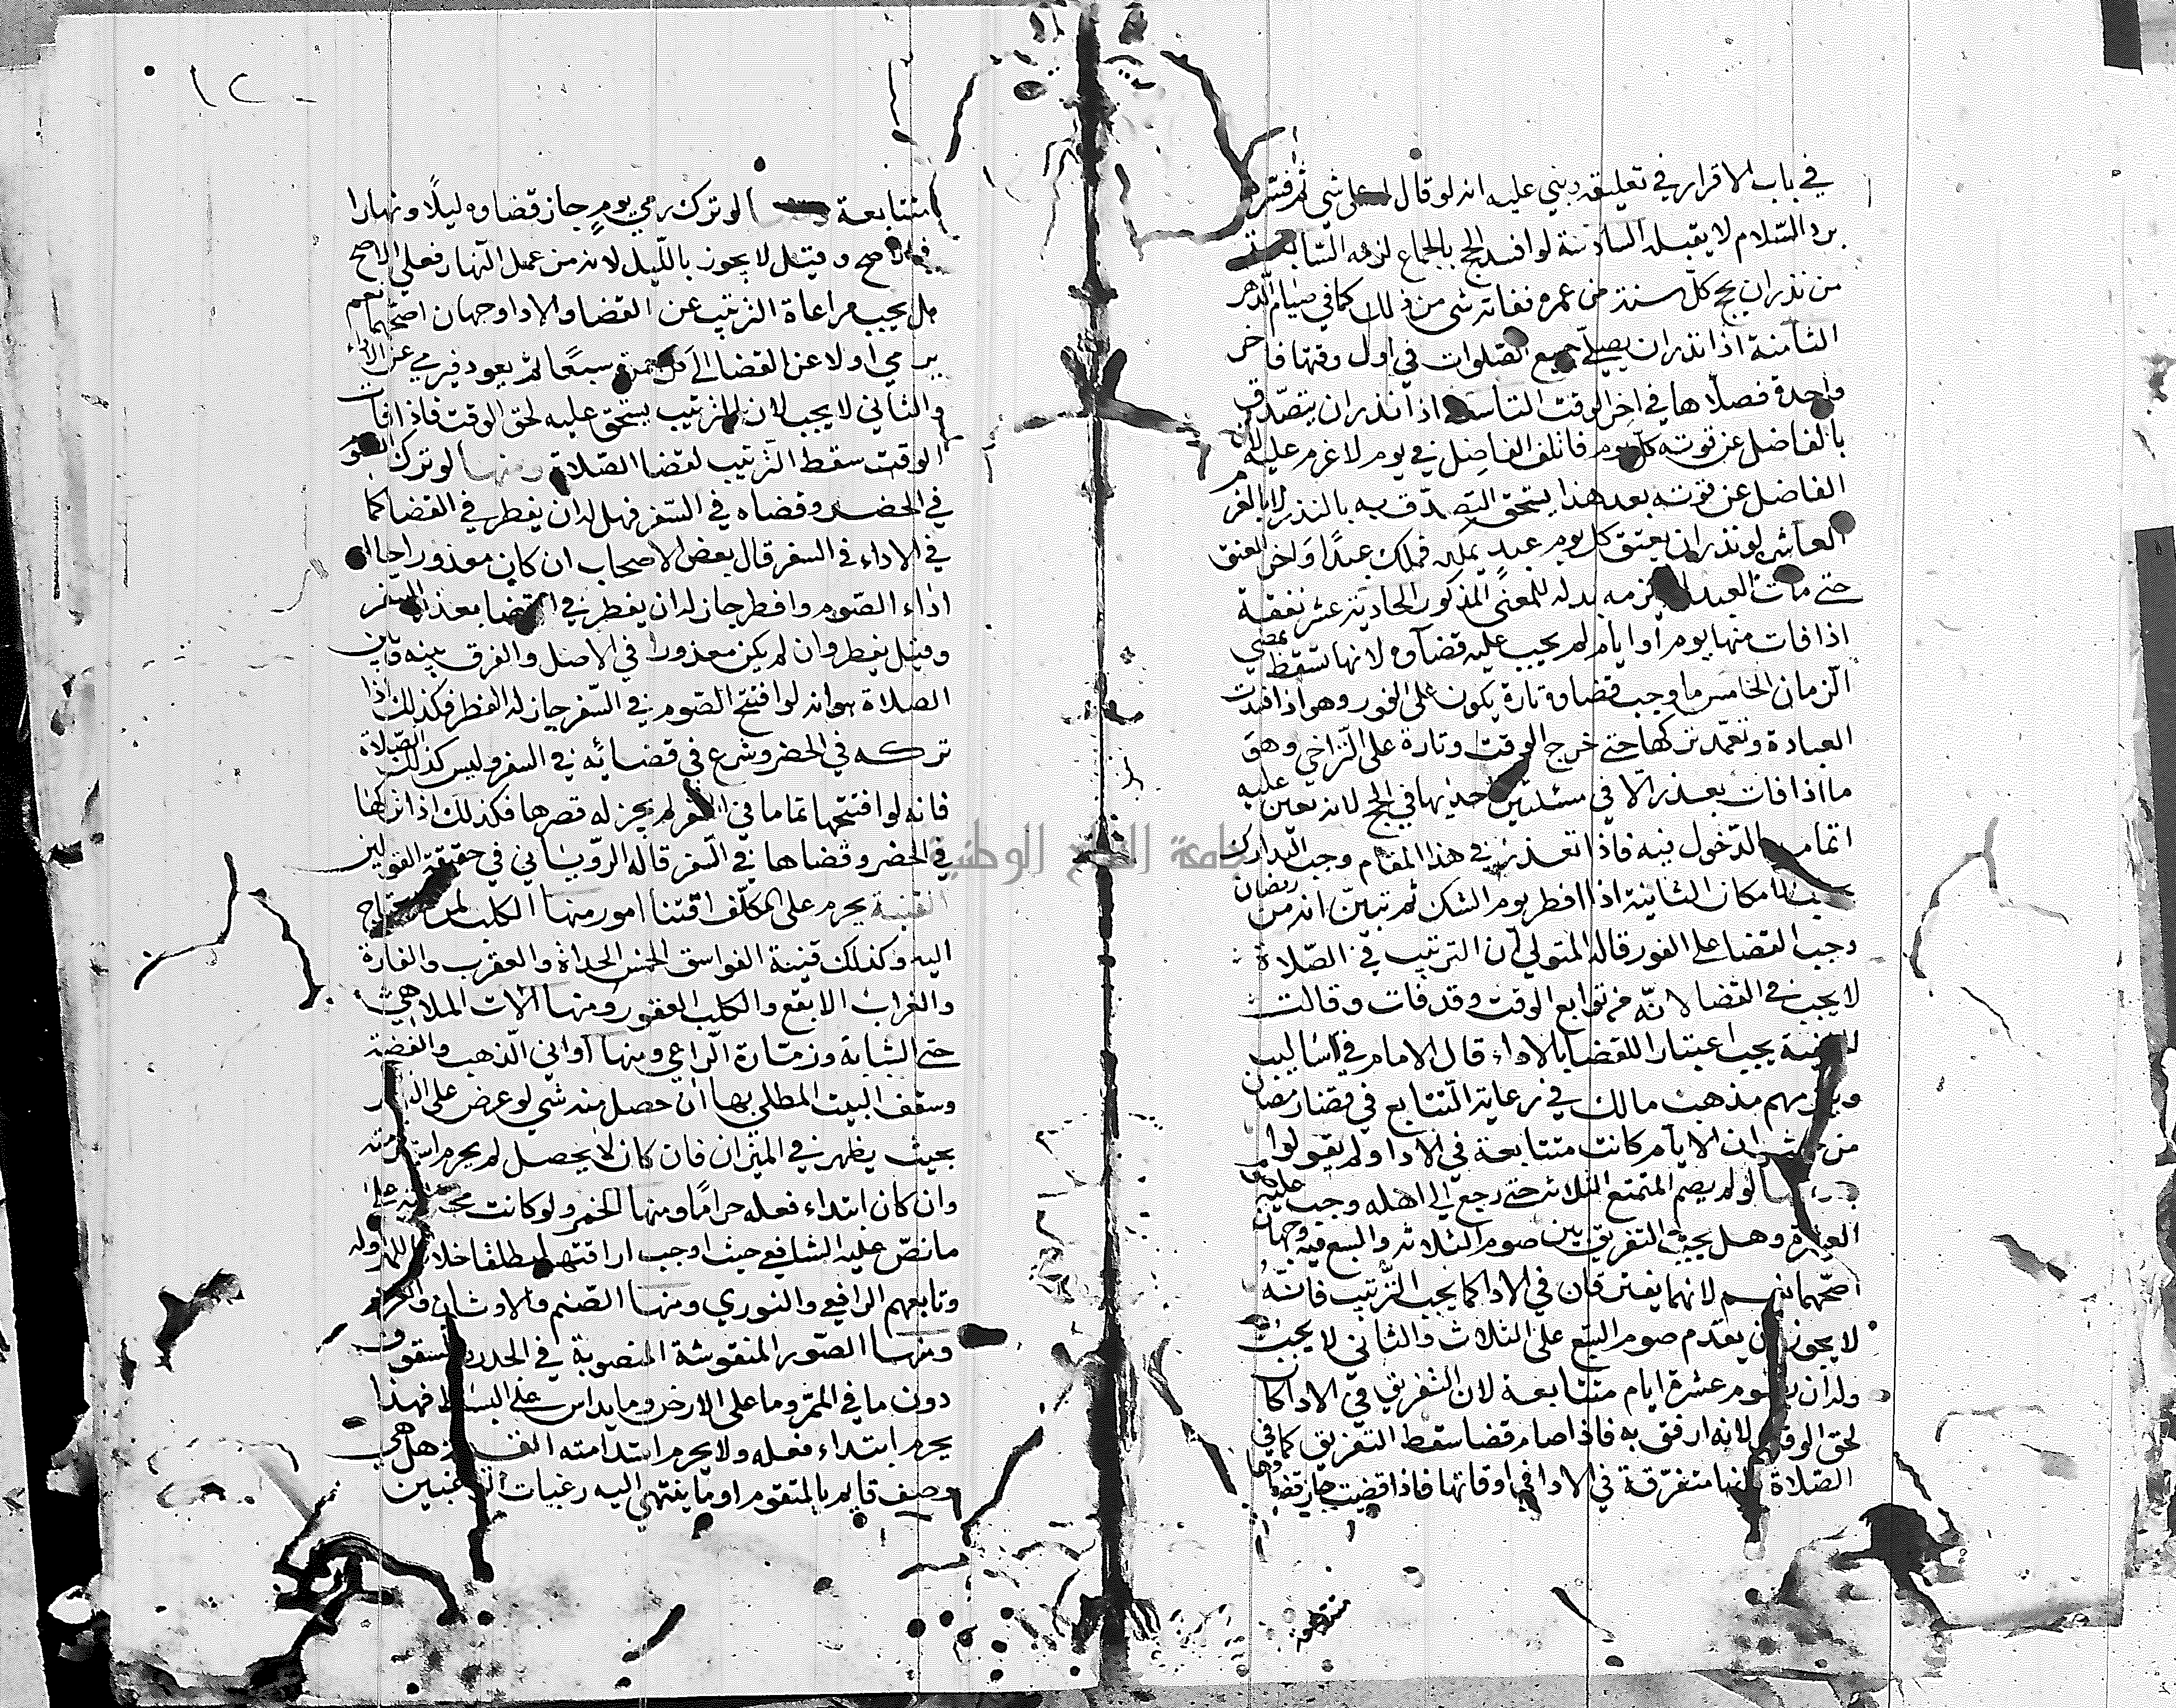 في باب الاقرار في تعليقه وبني عليه انه لو قال له علي شي ثم فسره
برد السلام لا يقبله السادسة لو افسد الحج بالجماع لزمه السابعة
من نذر ان يحج كل سنة من عمره ففاته شي من ذلك كما في صيام الدهر
الثامنة اذا نذر ان يصلي جميع الصلوات في اول وقتها فاخر
واحدة فصلاها في اخر الوقت التاسعة اذا نذر ان يتصدق
بالفاضل عن قوته كل يوم فاتلف الفاضل في يوم لا غرم عليه لان
الفاضل عن قوته بعد هذا يستحق التصدق به بالنذر لا بالغرم
العاشر لو نذر ان يعتق كل يوم عبد يملكه فملك عبدا واخر العتق
حتى مات العبد لزمه بدله للمعنى المذكور الحادية عشر نفقة
اذا فات منها يوم او ايام لم يجب عليه قضاوه لانها تسقط بمضي
الزمان الخامس ما وجب قضاوه تارة يكون على الفور وهو اذا افسدت
العبادة وتعمد تركها حتى خرج الوقت وتارة على التراخي وهو
ما اذا فات بعذر الا في مسئلتين احديهما في الحج لانه تعين عليه
اتمامه بالدخول فيه فاذا تعذر في هذا المقام وجب التدارك
بحسب الامكان الثانية اذا افطر يوم الشك ثم تبين انه من رمضان
وجب القضا على الفور قاله المتولي ان الترتيب في الصلاة
لا يجب في القضا لانه من توابع الوقت وقد فات وقالت
الحنفية يجب اعتبارا للقضا بالاداء قال الامام في اساليبه
ويلزمهم مذهب مالك في رعاية التتابع في قضا رمضان
من حيث ان الايام كانت متتابعة في الادا ولم يقولوا
به لو لم يصم المتمتع الثلاث حتى رجع الى اهله وجب عليه
العشرة وهل يجب التفريق بين صوم الثلاثة والسبع فيه وجهان
اصحهما نعم لانهما يفترقان في الادا كما يجب الترتيب فانه
لا يجوز ان يقدم صوم السبع على الثلاث والثاني لا يجب
وله ان يصوم عشرة ايام متتابعة لان التفريق في الادا كان
لحق الوقت لانه ارفق به فاذا صام قضا سقط التفريق كما في
الصلاة لانها متفرقة في الادا في اوقاتها فاذا قضيت جاز قضاوها
متتابعة
١٢
متتابعة لو ترك رمي يوم جاز قضاوه ليلا ونهارا
في الاصح وقيل لا يجوز بالليل لانه من عمل النهار فعلى الاصح
هل يجب مراعاة الترتيب عن القضا والادا وجهان اصحهما نعم
يرمي اولا عن القضا الى كل جمرة سبعا ثم يعود فيرمي عن الاداء
والثاني لا يجب لان الترتيب يستحق عليه لحق الوقت فاذا فات
الوقت سقط الترتيب لقضا الصلاة ومنها لو ترك الصوم
في الحضر وقضاه في السفر فهل له ان يفطر في القضا كما
في الاداء في السفر قال بعض الاصحاب ان كان معذورا حال
اداء الصوم وافطر جاز له ان يفطر في القضا بعذر السفر
وقيل يفطر وان لم يكن معذورا في الاصل والفرق بينه وبين
الصلاة هو انه لو افتتح الصوم في السفر جاز له الفطر فكذلك اذا
تركه في الحضر وشرع في قضائه في السفر وليس كذلك الصلاة
فانه لو افتتحها تماما في السفر لم يجز له قصرها فكذلك اذا تركها
في الحضر وقضاها في السفر قاله الروياني في حقيقة القولين
القنية يحرم على المكلف اقتنا امور منها الكلب لمن لا يحتاج
اليه وكذلك قنية الفواسق الخمس الحداة والعقرب والفارة
والغراب الابقع والكلب العقور ومنها الات الملاهي
حتى الشبابة وزمارة الراعي ومنها اواني الذهب والفضة
وسقف البيت المطلي بها ان حصل منه شي لو عرض على النار
بحيث يظهر في الميزان فان كان لا يحصل لم يحرم استدامته
وان كان ابتداء فعله حراما ومنها الخمر ولو كانت محترمة على
ما نص عليه الشافعي حيث اوجب اراقتها مطلقا خلافا للمراوزه
وتابعهم الرافعي والنوري ومنها الصنم والاوثان والقرد
ومنها الصور المنقوشة المنصوبة في الجدر والسقوف
دون ما في الممر وما على الارض وما يداس على البساط فهذا
يحرم ابتداء فعله ولا يحرم استدامته القيمة هل هي
وصف قايم بالمتقوم او ما ينتهي اليه رغبات الراغبين